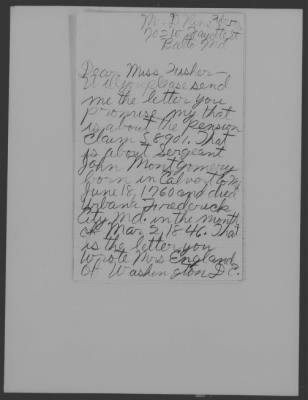 Balto Md.
Dear Miss Fisher —
Will you please send
me the letter you
promise my that
is about the pension
claim S 8901. That
is about Sergeant
John Montgomery
born in Calver
June 18, 1760 and died
Urbana Frederick
City Md. in the month
of Mar 2, 1846. That
is the letter you
wrote Mrs England
Of Washington D.C.